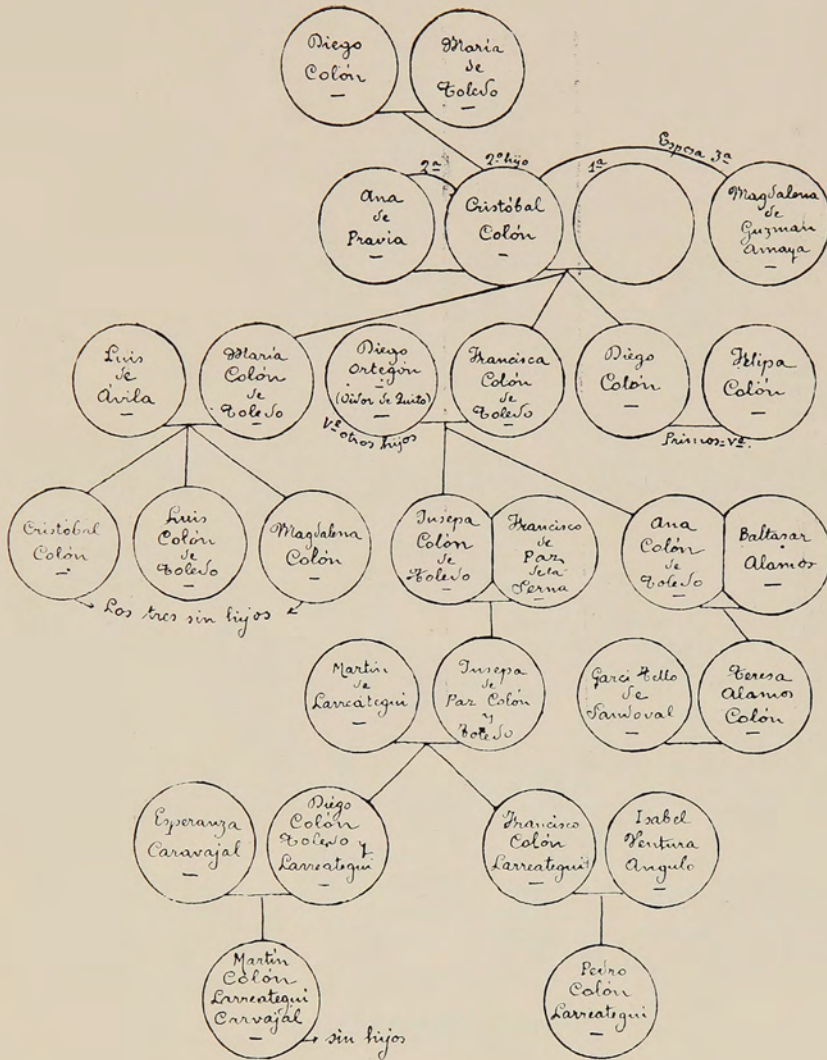 Diego
Colón
María
de
Toledo
2ª
2º hijo
1ª
Esposa 3ª
Ana
de
Pravia
Cristóbal
Colón
Magdalena
de
Guzman
Amaya
Luis
de
Ávila
María
Colón
de
Toledo
Diego
Ortegón
(Oidor de Quito)
Francisca
Colón
de
Toledo
Diego
Colón
Felipa
Colón
Vª otros hijos
Primos=Vª.
Cristóbal
Colón
Luis
Colón
de
Toledo
Magdalena
Colón
Jusepa
Colón
de
Toledo
Francisco
de
Paz
de la
Serna
Ana
Colón
de
Toledo
Baltasar
Alamos
Los tres sin hijos
Martín
de
Larreátegui
Jusepa
de
Paz Colón
y
Toledo
Garci Tello
de
Sandoval
Teresa
Alamos
Colón
Esperanza
Caravajal
Diégo
Colón
Toledo y
Larreategui
Francisco
Colón
Larreategui
Isabel
Ventura
Angulo
Martín
Colón
Larreategui
Carvajal
sin hijos
Pedro
Colón
Larreategui